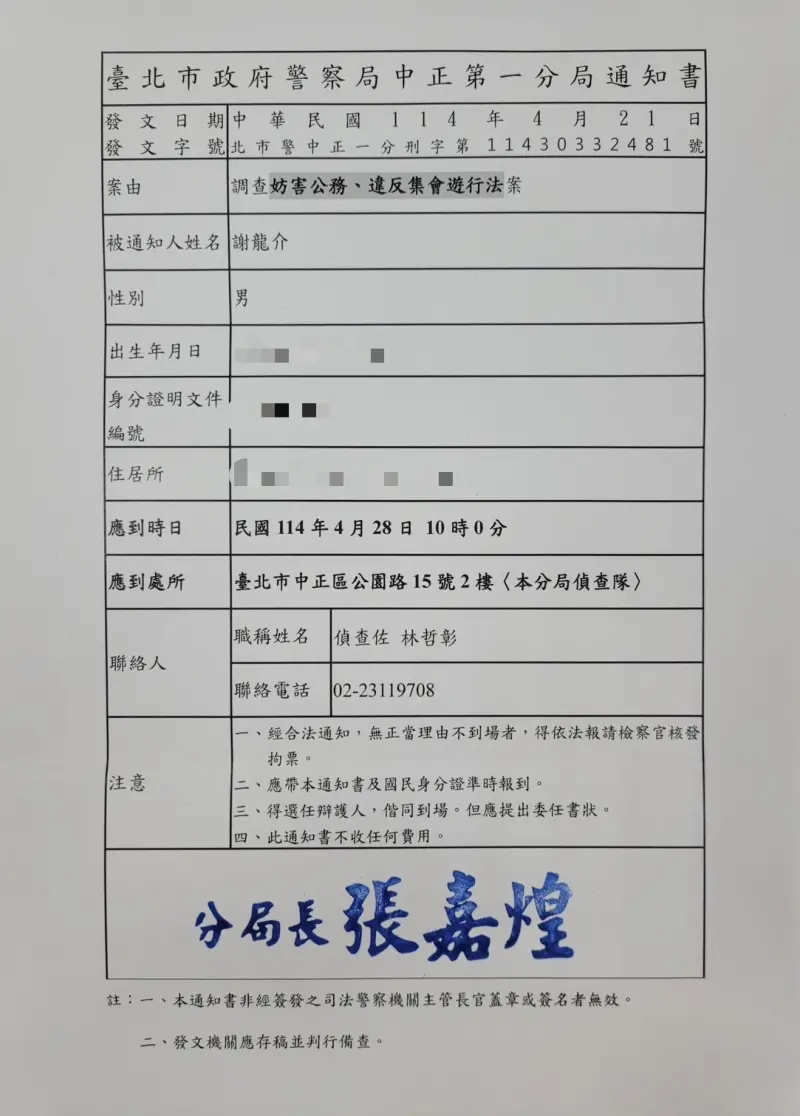 臺北市政府警察局中正第一分局通知書
發文日期 中華民國114年4月21日
發文字號 北市警中正一分刑字第11430332481號
案由 調查妨害公務、違反集會遊行法案
被通知人姓名 謝龍介
性別 男
出生年月日
身分證明文件
編號
住居所
應到時日 民國114年4月28日 10時0分
應到處所 臺北市中正區公園路15號2樓〈本分局偵查隊〉
聯絡人
職稱姓名 偵查佐 林哲彰
聯絡電話 02-23119708
注意
一、經合法通知，無正當理由不到場者，得依法報請檢察官核發
拘票。
二、應帶本通知書及國民身分證準時報到。
三、得選任辯護人，偕同到場。但應提出委任書狀。
四、此通知書不收任何費用。
分局長 張嘉煌
註：一、本通知書非經簽發之司法警察機關主管長官蓋章或簽名者無效。
二、發文機關應存稿並判行備查。